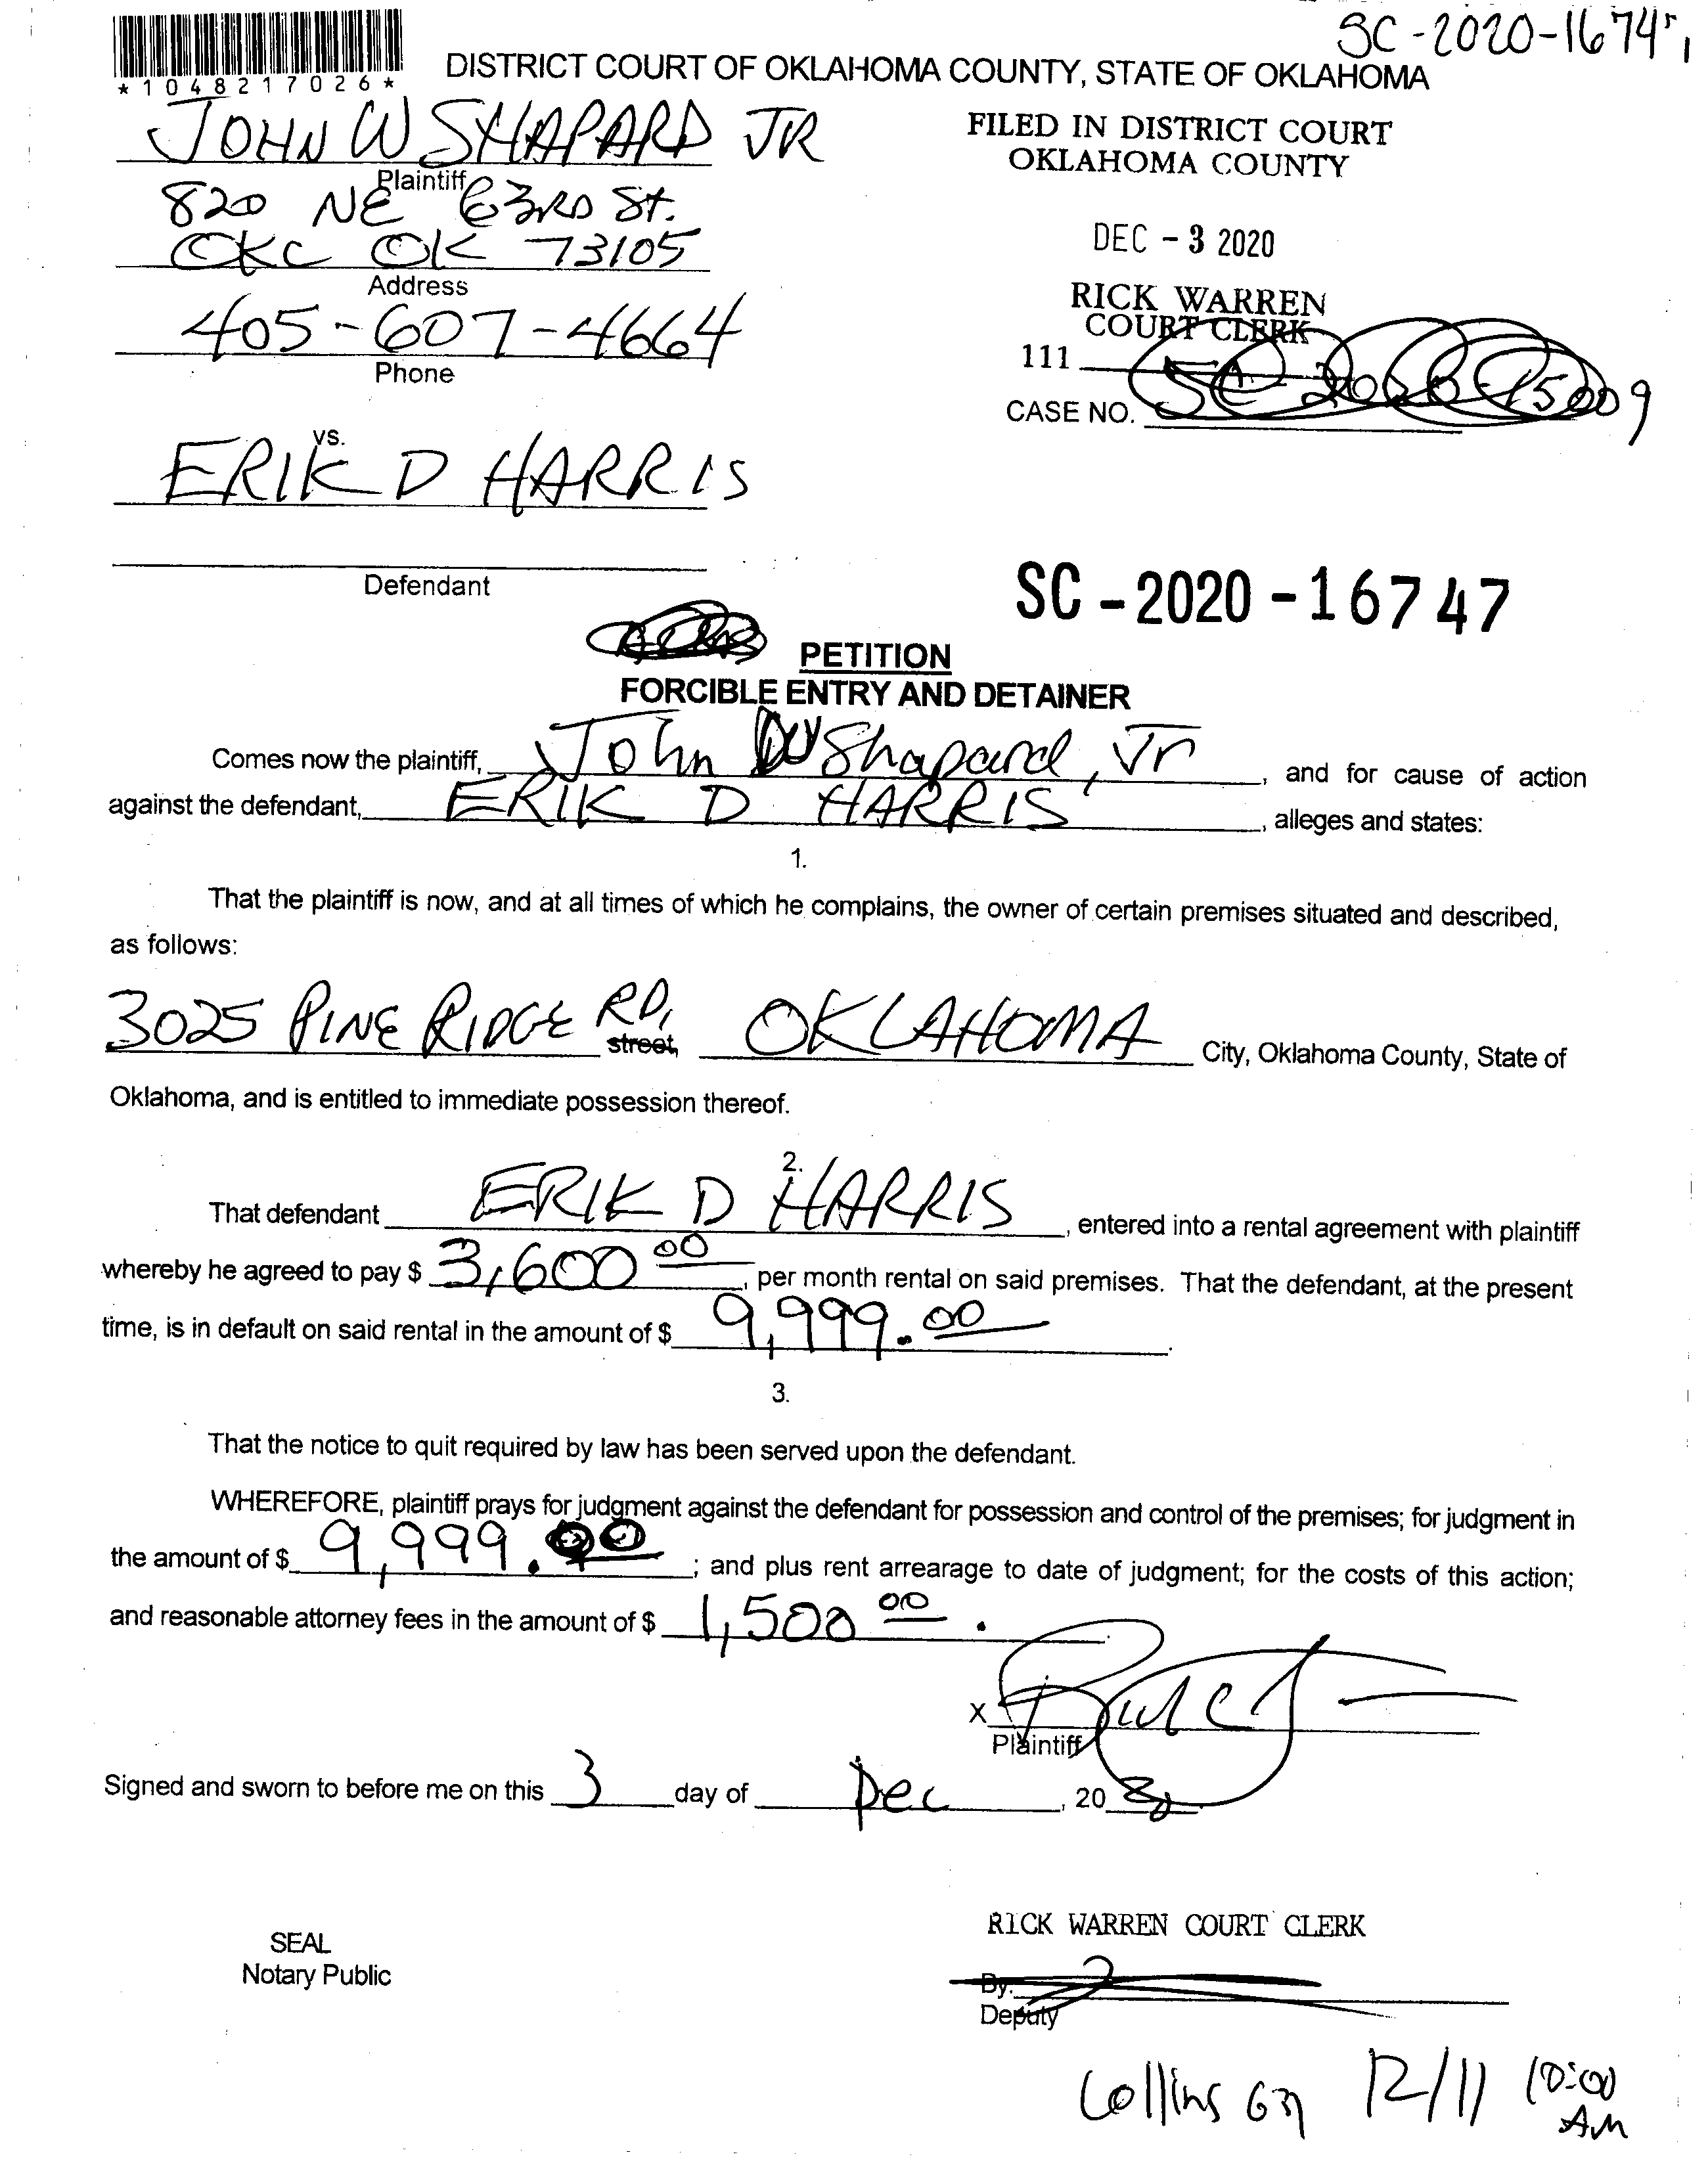 SC-2020-1674
*1048217026*
DISTRICT COURT OF OKLAHOMA COUNTY, STATE OF OKLAHOMA
JOHN W SHAPARD JR
Plaintiff
820 NE 63RD St.
OKC OK 73105
Address
405-607-4664
Phone
FILED IN DISTRICT COURT
OKLAHOMA COUNTY
DEC - 3 2020
RICK WARREN
COURT CLERK
111
CASE NO. SC-2020-15009
vs.
ERIK D HARRIS
Defendant
SC-2020-16747
PETITION
FORCIBLE ENTRY AND DETAINER
Comes now the plaintiff, John W Shapard, Jr, and for cause of action
against the defendant, ERIK D HARRIS, alleges and states:
1.
That the plaintiff is now, and at all times of which he complains, the owner of certain premises situated and described,
as follows:
3025 PINE RIDGE RD, street, OKLAHOMA City, Oklahoma County, State of
Oklahoma, and is entitled to immediate possession thereof.
2.
That defendant ERIK D HARRIS, entered into a rental agreement with plaintiff
whereby he agreed to pay $ 3,600 00, per month rental on said premises. That the defendant, at the present
time, is in default on said rental in the amount of $ 9,999.00.
3.
That the notice to quit required by law has been served upon the defendant.
WHEREFORE, plaintiff prays for judgment against the defendant for possession and control of the premises; for judgment in
the amount of $ 9,999.00; and plus rent arrearage to date of judgment; for the costs of this action;
and reasonable attorney fees in the amount of $ 1,500 00.
X
Plaintiff
Signed and sworn to before me on this 3 day of Dec, 20 20
RICK WARREN COURT CLERK
SEAL
Notary Public
By:
Deputy
Collins 12/11 10:00
AM